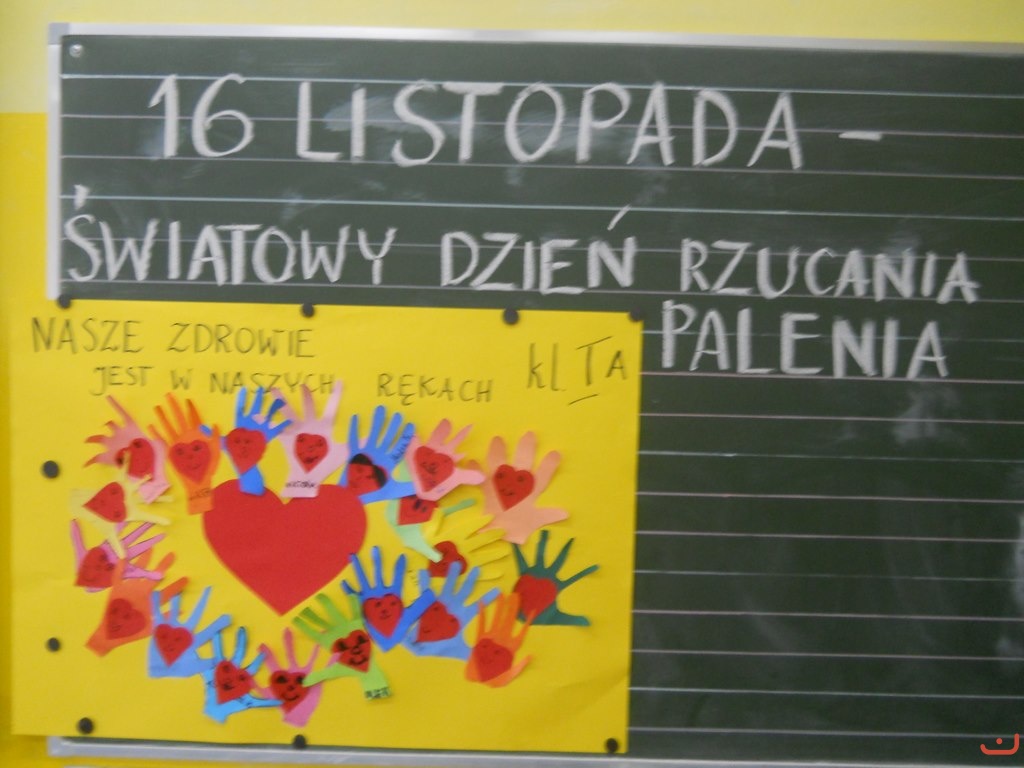 16 LISTOPADA -
ŚWIATOWY DZIEŃ RZUCANIA
PALENIA
NASZE ZDROWIE
JEST W NASZYCH RĘKACH
kl. IA